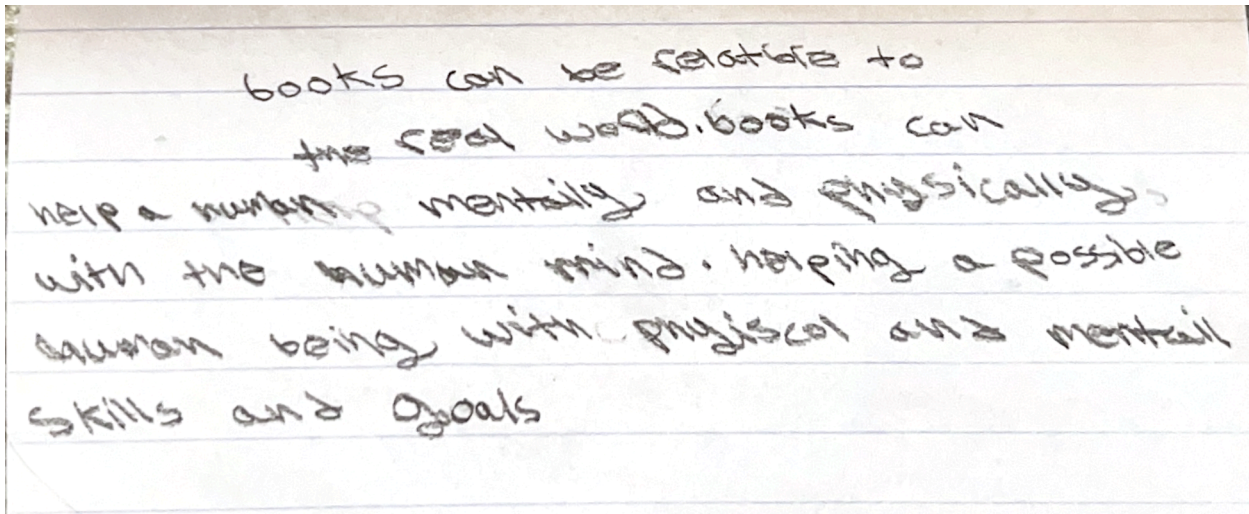 books can be relatible to
the real world. books can
help a human mentaily and physically
with the human mind. helping a possible
human being with phyiscal and mentail
skills and goals